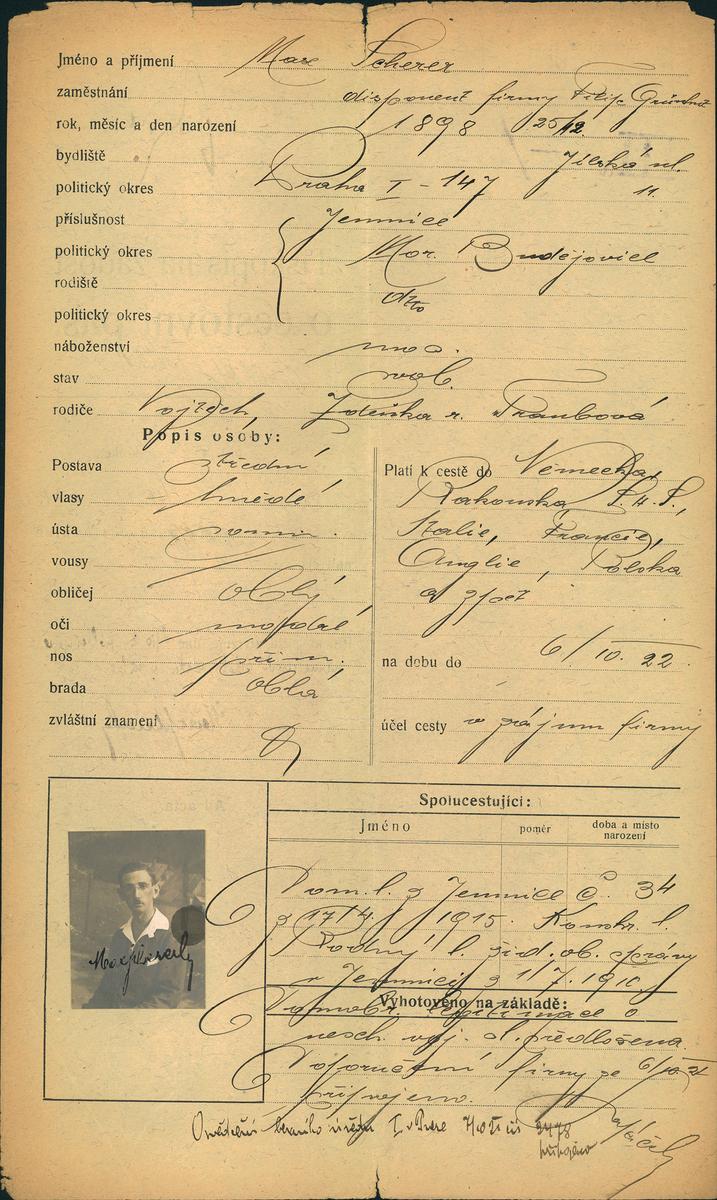 Jméno a příjmení Max Scherer
zaměstnání disponent firmy Filip
rok, měsíc a den narození 1898 25/12
bydliště Jilská ul.
politický okres Praha I - 147 11.
příslušnost Jemnice
politický okres Mor. Budějovice
rodiště
politický okres dtto
náboženství mos.
stav svob.
rodiče Vojtěch, Zdeňka r. Traubová
Popis osoby:
Postava střední
vlasy hnědé
ústa
vousy
obličej oblý
oči modré
nos přim.
brada oblá
zvláštní znamení
Platí k cestě do Německa,
Rakouska, S.H.S.,
Italie, Francie,
Anglie, Polska
a zpět
na dobu do 6/10. 22
účel cesty v zájmu firmy
Spolucestující:
Jméno poměr doba a místo
narození
Dom. l. z Jemnice č. 34
z 17/4 1915. Konskr. l.
Rodný l. žid. ob. správy
v Jemnici z 1/7. 1910.
Vyhotoveno na základě:
legitimace o
nesch. voj. sl. předložena.
Doporučení firmy ze 6/10 21
připojeno.
Osvědčení berního úřadu I v Praze 2478
připojeno